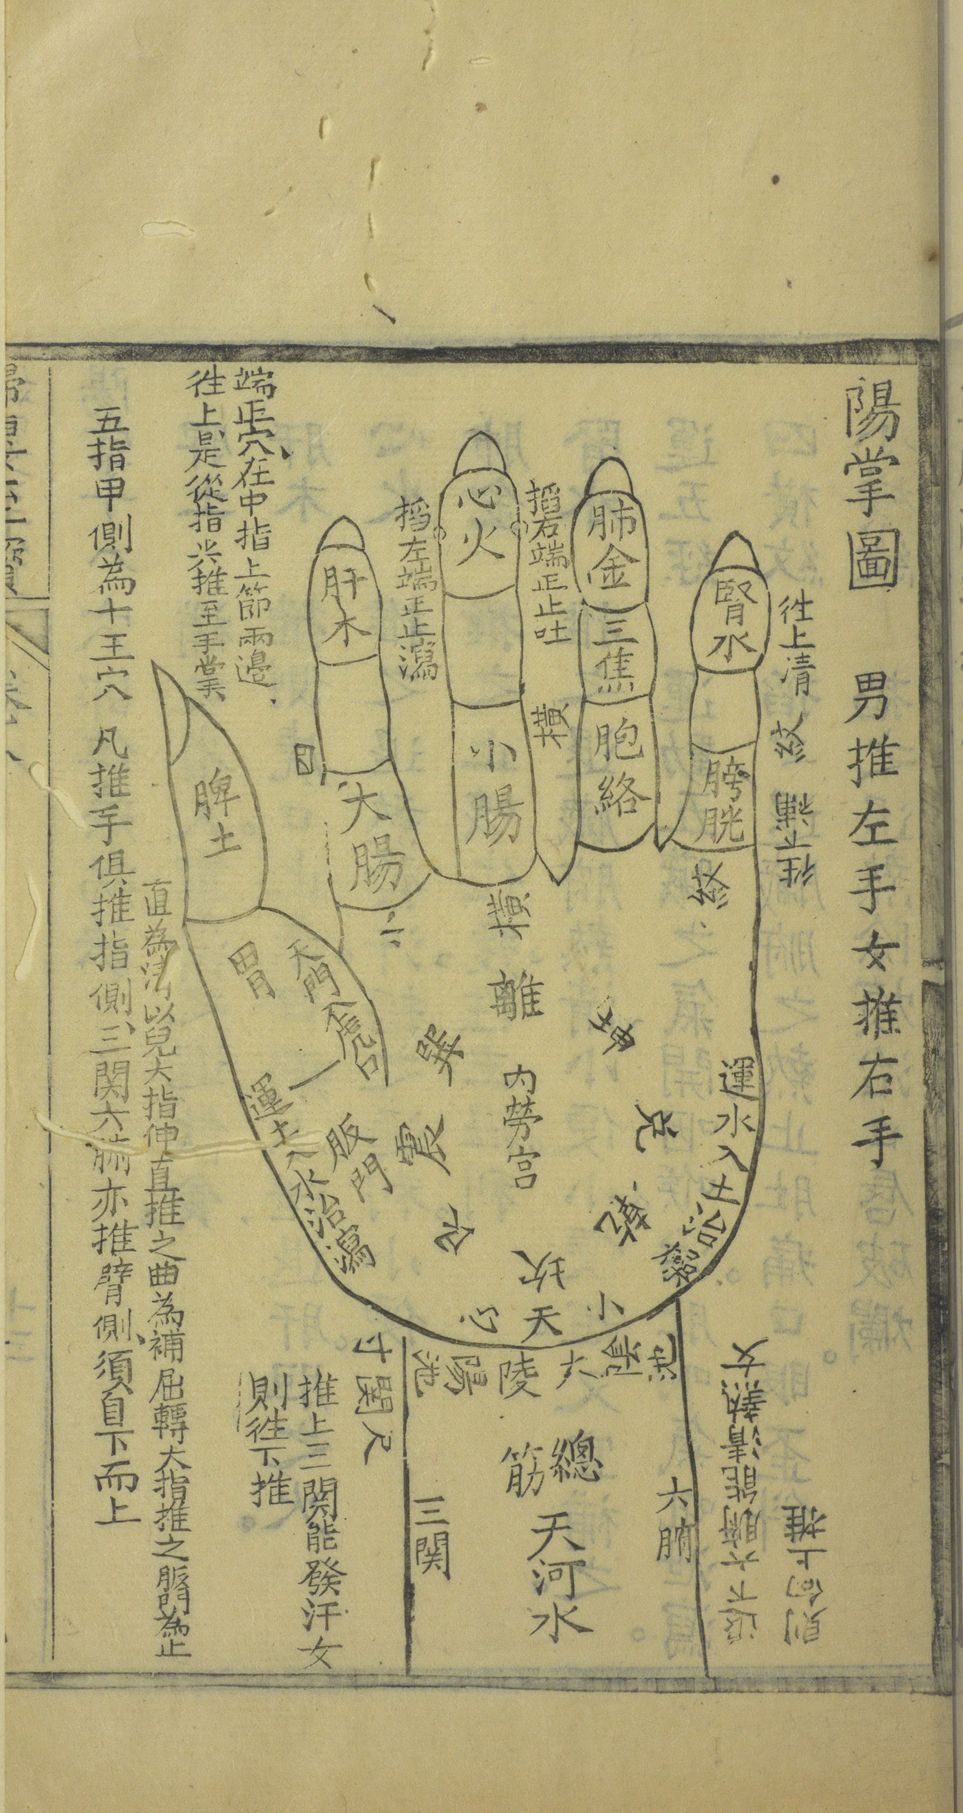 陽掌圖　男推左手女推右手
徃上清
徃下補
腎水
膀胱
紋
紋
肺金
三焦
胞絡
掐右端正止吐
橫
心火
小腸
橫
掐左端正止瀉
肝木
大腸
脾土
端正穴在中指上節兩邊
徃上是從指尖推至手掌
五指甲側為十王穴　凡推手俱推指側三関六腑亦推臂側須自下而上
直為清以兒大指伸直推之曲為補屈轉大指推之脤門為止
胃
天門
入虎口
運土入水治瀉
脤門
離
坤
兌
乾
坎
艮
震
巽
內勞宮
運水入土治
小天心
大陵
陽池
寸関尺
總筋
天河水
三関
六腑
推上三関能發汗女
則徃下推
退下六腑能清熱女
則向上推